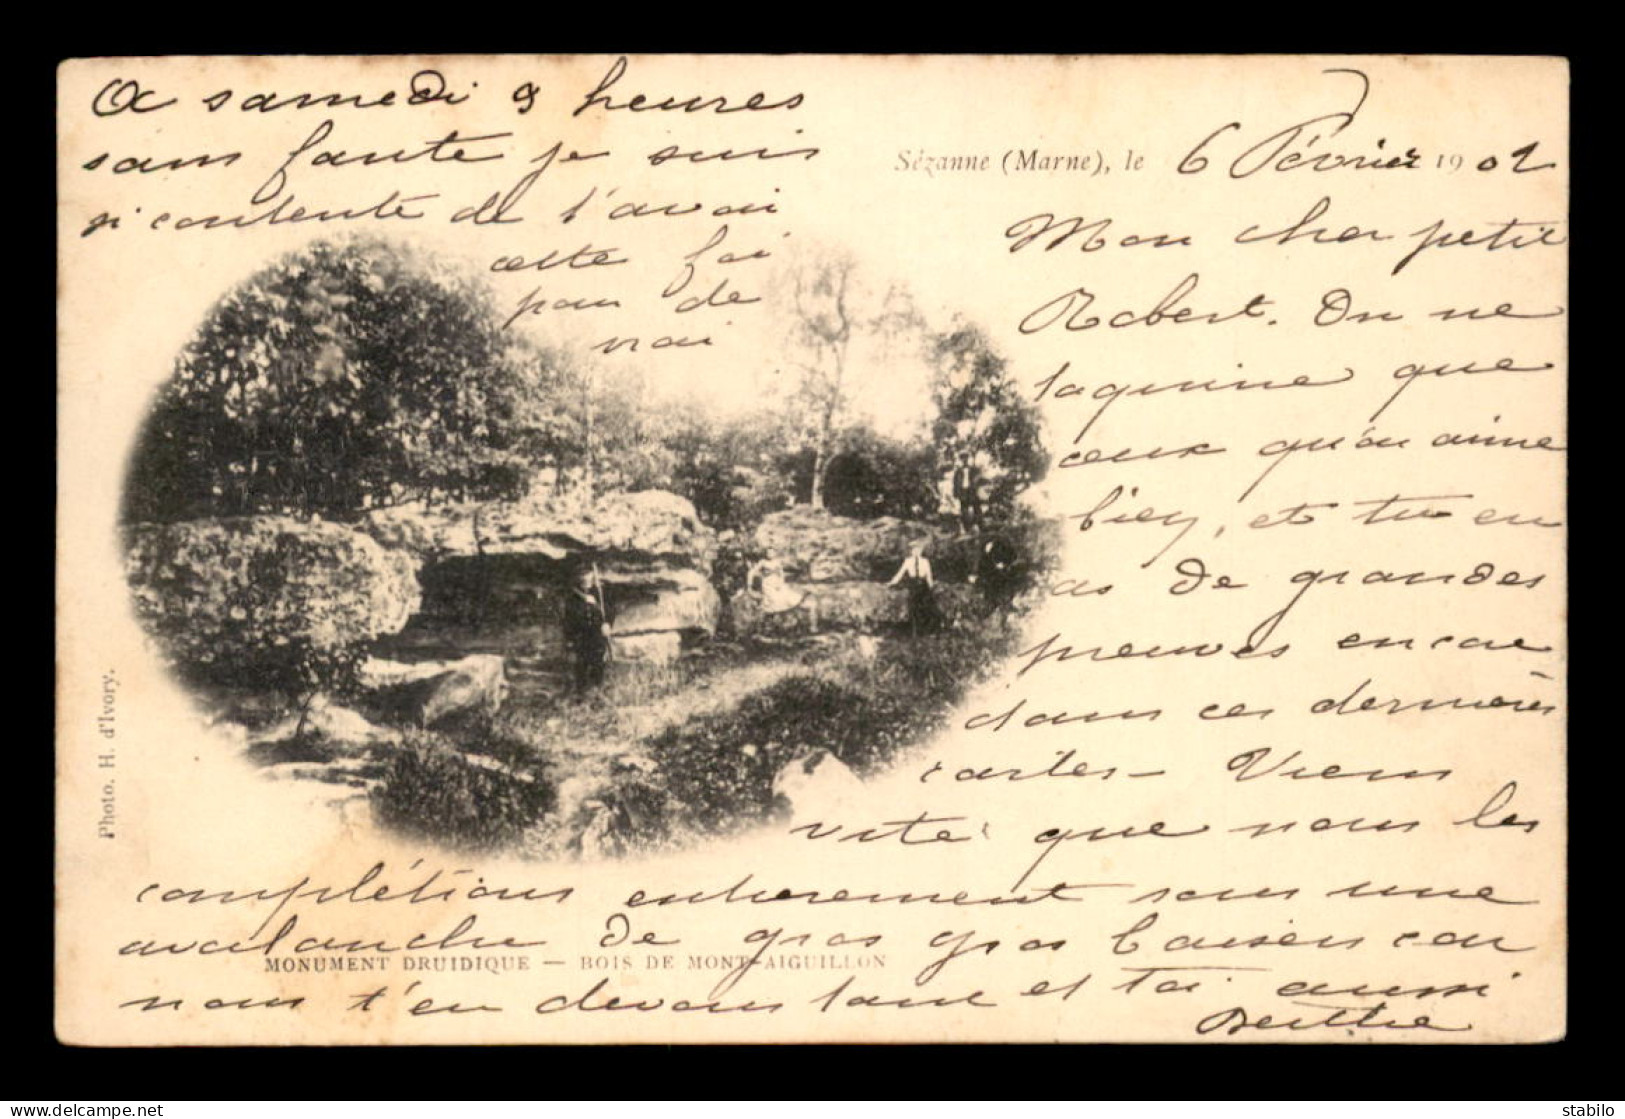 Sézanne (Marne), le 6 Février 1902
Mon cher petit
Robert. On ne
taquine que
ceux qu'on aime
bien, et tu en
as de grandes
preuves encore
dans ces dernières
cartes - Viens
vite que nous les
complétions entièrement sous une
avalanche de gros gros baisers car
nous t'en devons tant et toi aussi
Berthe
A samedi 9 heures
sans faute je suis
si contente de t'avoir
cette foi
pour de
vrai
Photo. H. d'Ivory.
MONUMENT DRUIDIQUE — BOIS DE MONT-AIGUILLON
stabilo